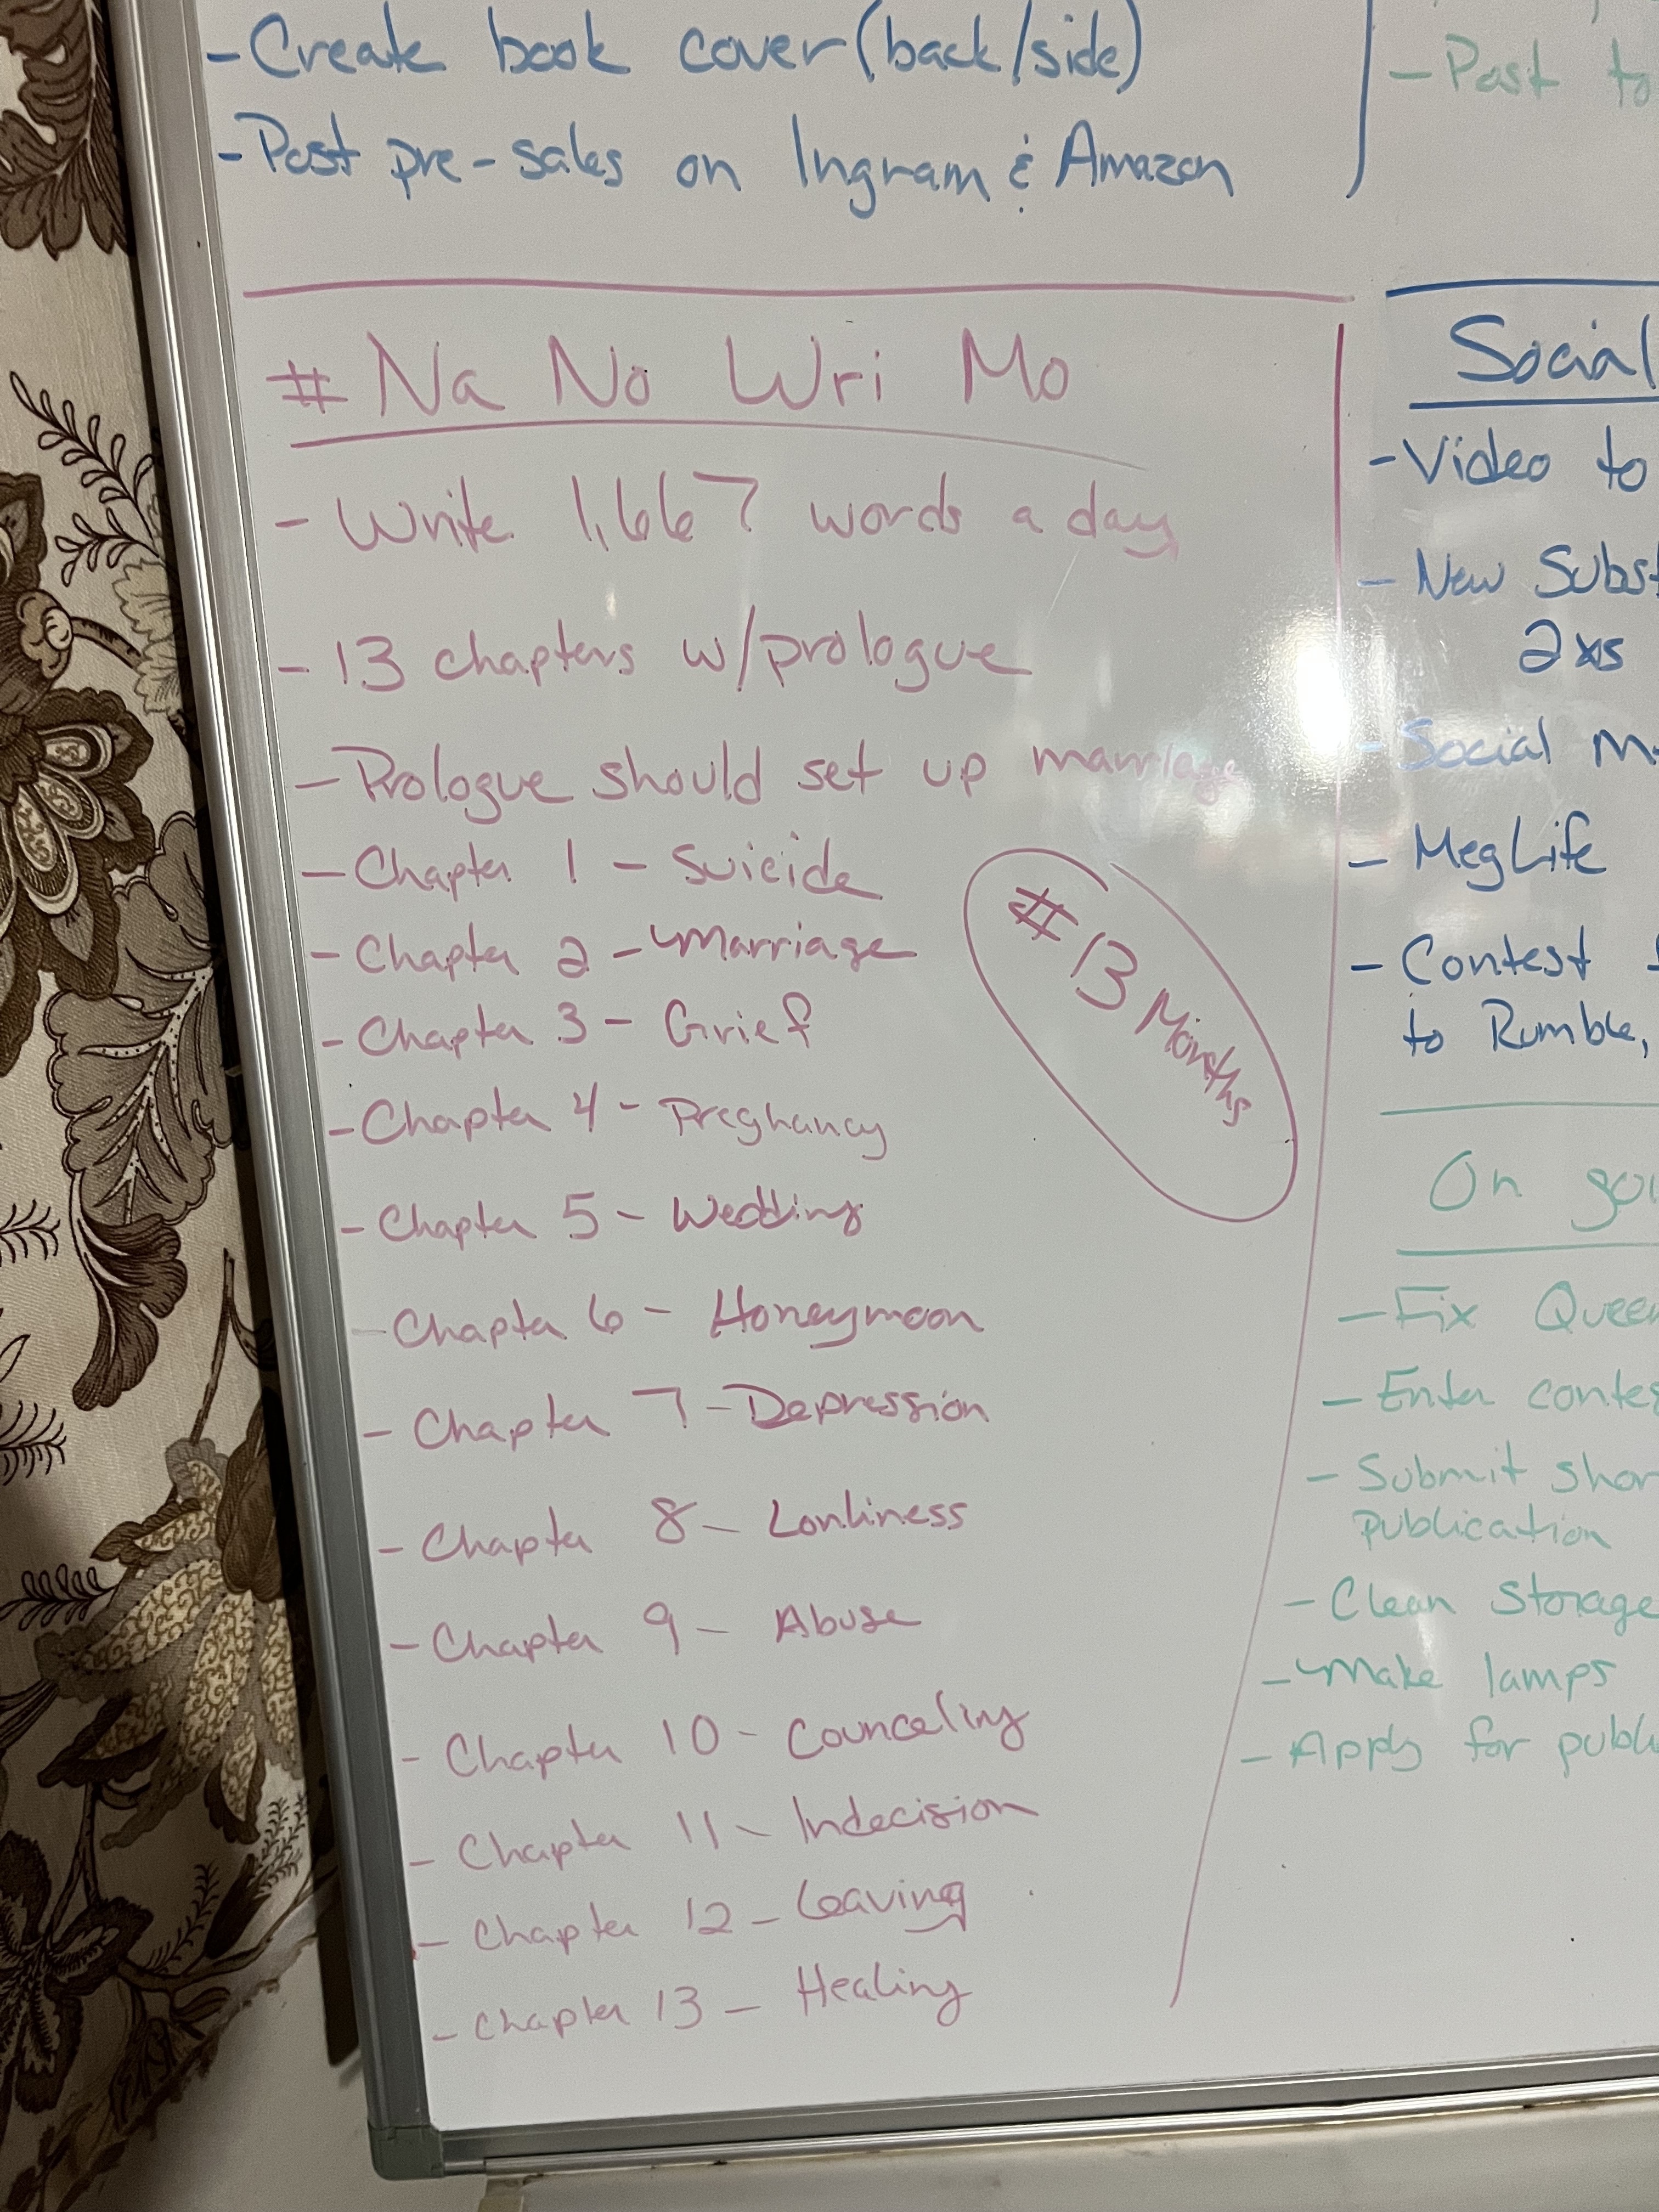 - Create book cover (back/side)
- Post pre-sales on Ingram & Amazon
- Post to
# Na No Wri Mo
- Write 1,667 words a day
- 13 chapters w/prologue
- Prologue should set up marriage
- Chapter 1 - Suicide
- Chapter 2 - Marriage
- Chapter 3 - Grief
- Chapter 4 - Pregnancy
- Chapter 5 - Wedding
- Chapter 6 - Honeymoon
- Chapter 7 - Depression
- Chapter 8 - Lonliness
- Chapter 9 - Abuse
- Chapter 10 - Counceling
- Chapter 11 - Indecision
- Chapter 12 - Leaving
- Chapter 13 - Healing
# 13 Months
Social
- Video to
- New Subst
2xs
- Social M
- MegLife
- Contest
to Rumble,
On goi
- Fix Queen
- Enter contes
- Submit shor
publication
- Clean Storage
- Make lamps
- Apply for publi